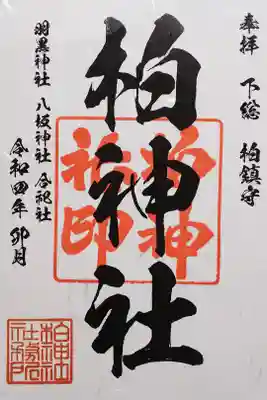 奉拝 下総 柏鎮守
柏神社
柏神社印
羽黒神社 八坂神社 合祀社
令和四年 卯月